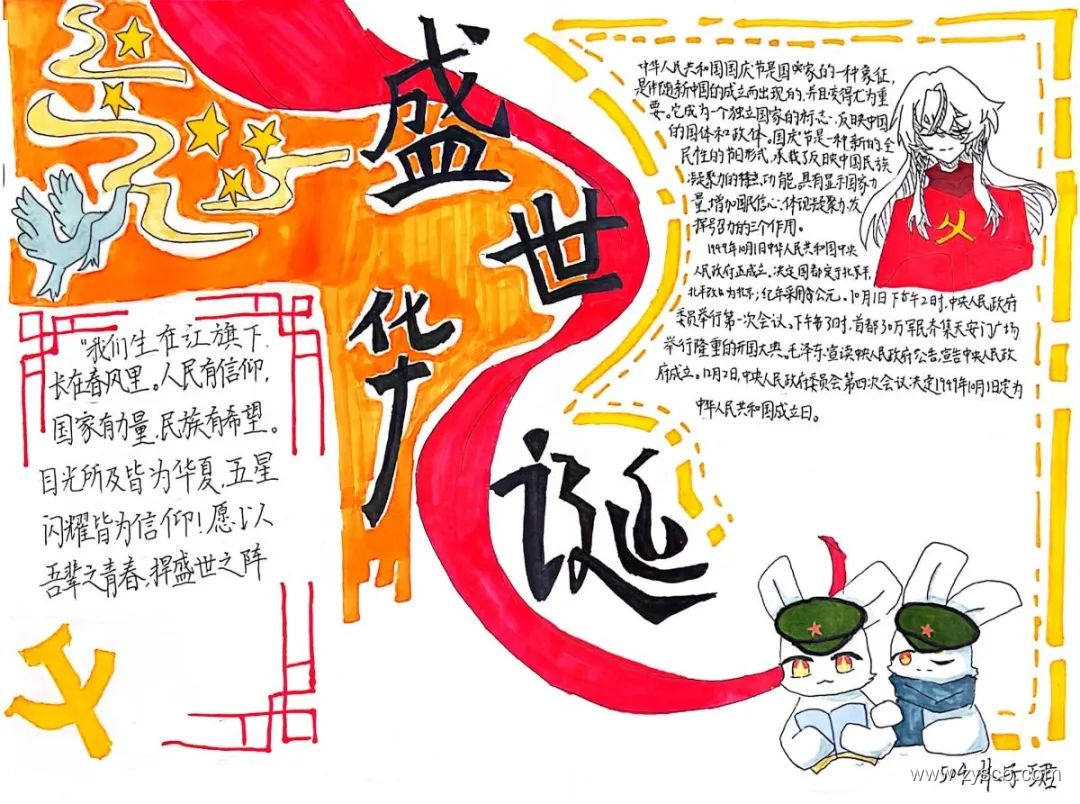 盛世华诞
"我们生在江旗下,
长在春风里。人民有信仰,
国家有力量,民族有希望。
目光所及皆为华夏,五星
闪耀皆为信仰!愿以
吾辈之青春、捍盛世之阵
中华人民共和国国庆节是国家的一种象征,
是伴随新中国的成立而出现的,并且变得尤为重
要。它成为一个独立国家的标志,反映中国
的国体和政体。国庆节是一种新的全
民性的节日形式,承载了反映中国民族
凝聚力的功能,具有显示国家力
量,增加国民信心,体现凝聚力,发
挥号召力的三个作用。
1949年10月1日中华人民共和国中央
人民政府正成立,决定国都定于北平,
北平改名为北京;纪年采用公元。10月1日下午2时,中央人民政府
委员举行第一次会议。下午3时,首都30万军民齐集天安门广场,
举行隆重的开国大典。毛泽东宣读中央人民政府公告,宣告中央人民政
府成立。12月2日,中央人民政府委员会第四次会议决定1949年10月1日定为
中华人民共和国成立日。
504
www.zyscb.com